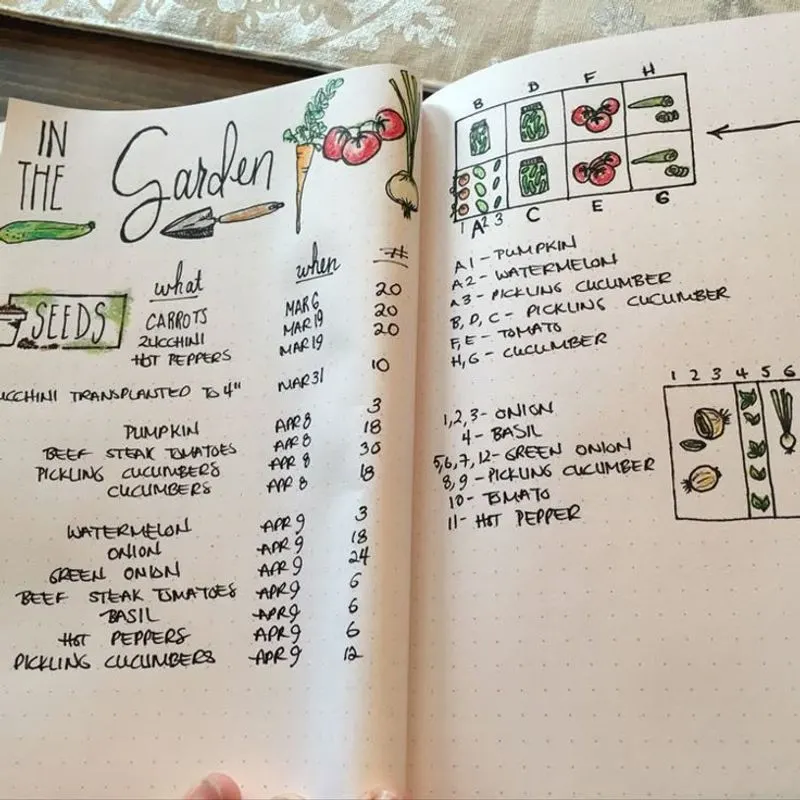 IN
THE
Garden
what when #
SEEDS
CARROTS MAR 6 20
ZUCCHINI MAR 19 20
HOT PEPPERS MAR 19 20
TRANSPLANTED TO 4" MAR 31 10
PUMPKIN APR 8 3
BEEF STEAK TOMATOES APR 8 18
PICKLING CUCUMBERS APR 8 36
CUCUMBERS APR 8 18
WATERMELON APR 9 3
ONION APR 9 18
GREEN ONION APR 9 24
BEEF STEAK TOMATOES APR 9 6
BASIL APR 9 6
HOT PEPPERS APR 9 6
PICKLING CUCUMBERS APR 9 12
B D F H
1 2 3
A C E G
A1 - PUMPKIN
A2 - WATERMELON
A3 - PICKLING CUCUMBER
B, D, C - PICKLING CUCUMBER
F, E - TOMATO
H, G - CUCUMBER
1 2 3 4 5 6
1, 2, 3 - ONION
4 - BASIL
5, 6, 7, 12 - GREEN ONION
8, 9 - PICKLING CUCUMBER
10 - TOMATO
11 - HOT PEPPER